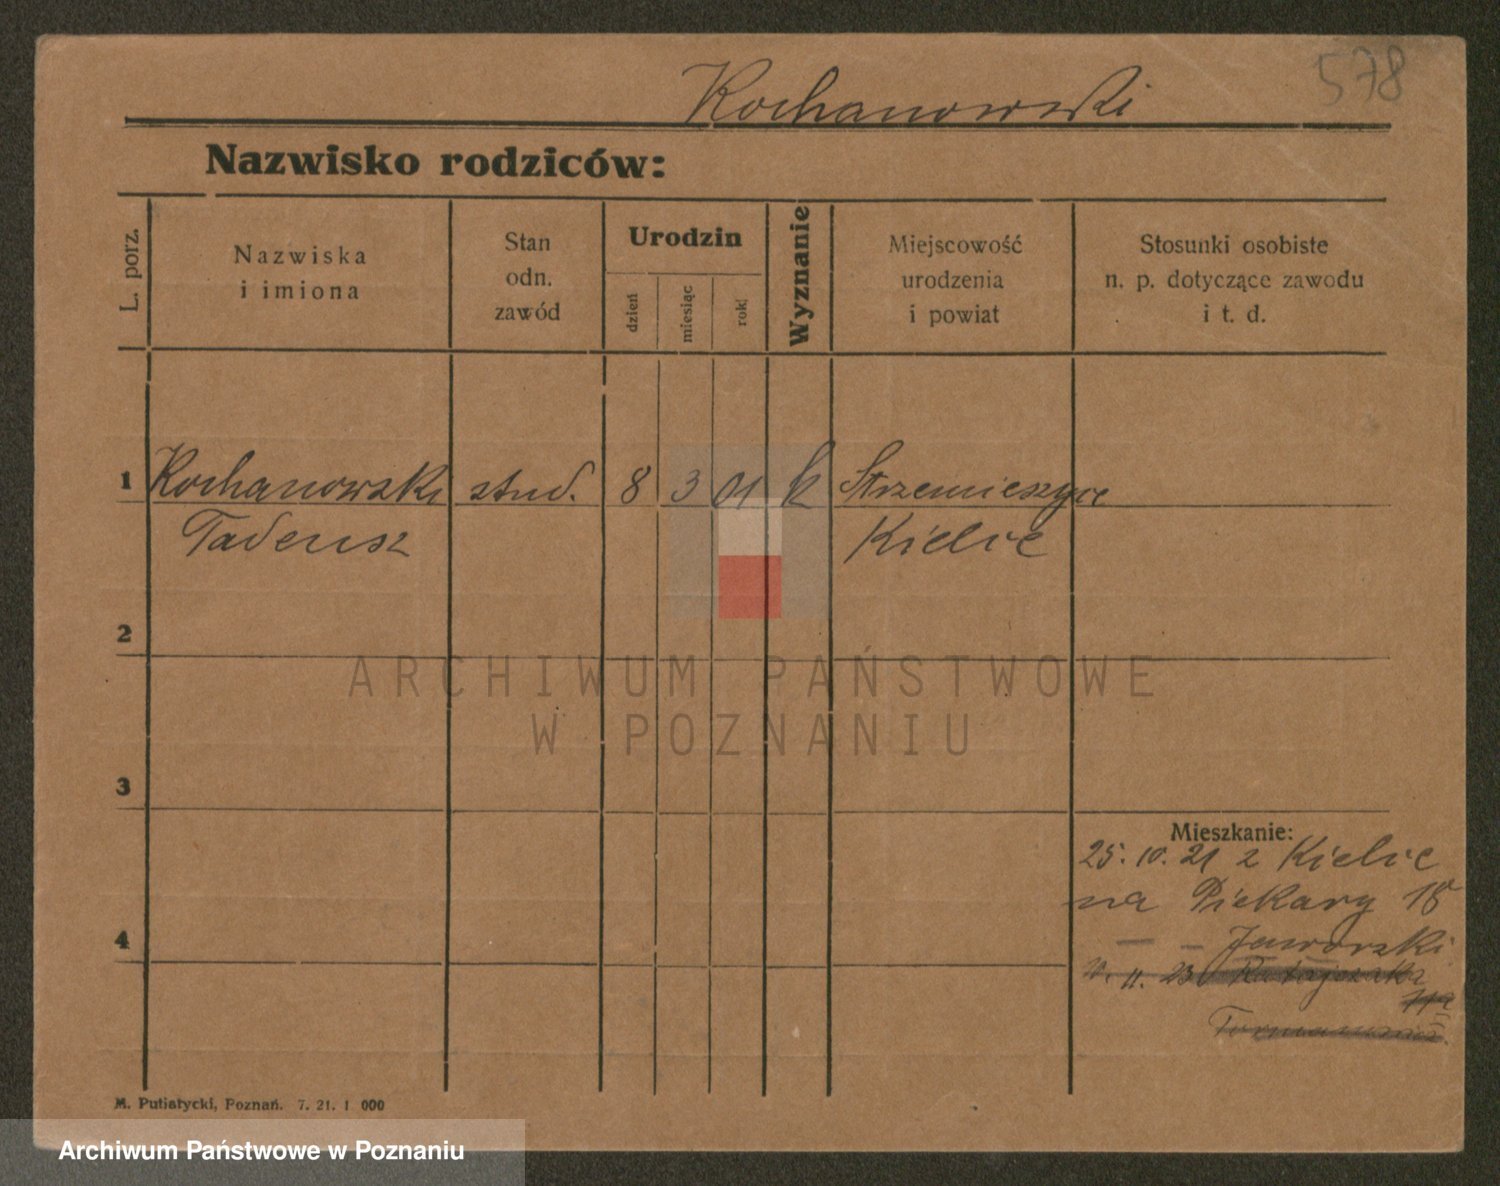 578
Kochanowski
Nazwisko rodziców:
L. porz.
Nazwiska
i imiona
Stan
odn.
zawód
Urodzin
dzień
miesiąc
rok
Wyznanie
Miejscowość
urodzenia
i powiat
Stosunki osobiste
n. p. dotyczące zawodu
i t. d.
1 Kochanowski stud. 8 3 01 k Strzemieszyce
Tadeusz Kielce
2
3
4
Mieszkanie:
25. 10. 21 z Kielc
na Piekary 18
— — Jaworski
10. 11. 23 Ratajczaka
11a
M. Putiatycki, Poznań. 7. 21. 1 000
ARCHIWUM PAŃSTWOWE
W POZNANIU
Archiwum Państwowe w Poznaniu